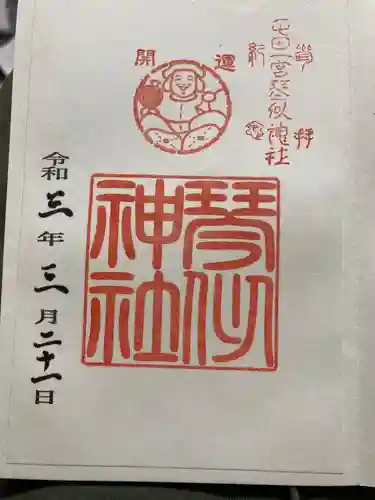 屯田一宮琴似神社
開運
琴似
神社
令和三年三月二十一日